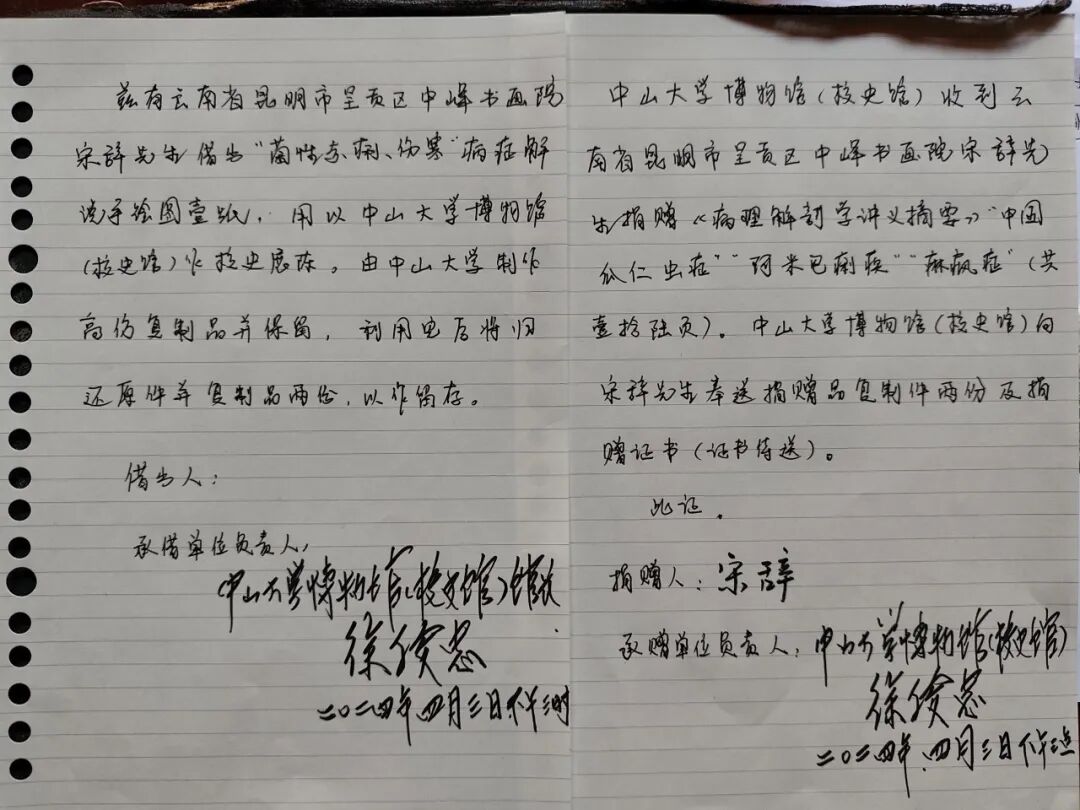 兹有云南省昆明市呈贡区中峰书画院
宋辞先生借出“菌性赤痢、伤寒”病症解
说手绘图壹纸，用以中山大学博物馆
（校史馆）作校史展陈。由中山大学制作
高仿复制品并保留，利用毕后将归
还原件并复制品两份，以作留存。
借出人：
承借单位负责人：
中山大学博物馆（校史馆）馆长
徐俊忠
二〇二四年四月三日下午三时
中山大学博物馆（校史馆）收到云
南省昆明市呈贡区中峰书画院宋辞先
生捐赠《病理解剖学讲义摘要》“中国
瓜仁虫症”“阿米巴痢疾”“麻疯症”（共
壹拾陆页）。中山大学博物馆（校史馆）向
宋辞先生奉送捐赠品复制件两份及捐
赠证书（证书待送）。
此证。
捐赠人：宋辞
承赠单位负责人：中山大学博物馆（校史馆）
徐俊忠
二〇二四年四月三日下午三点